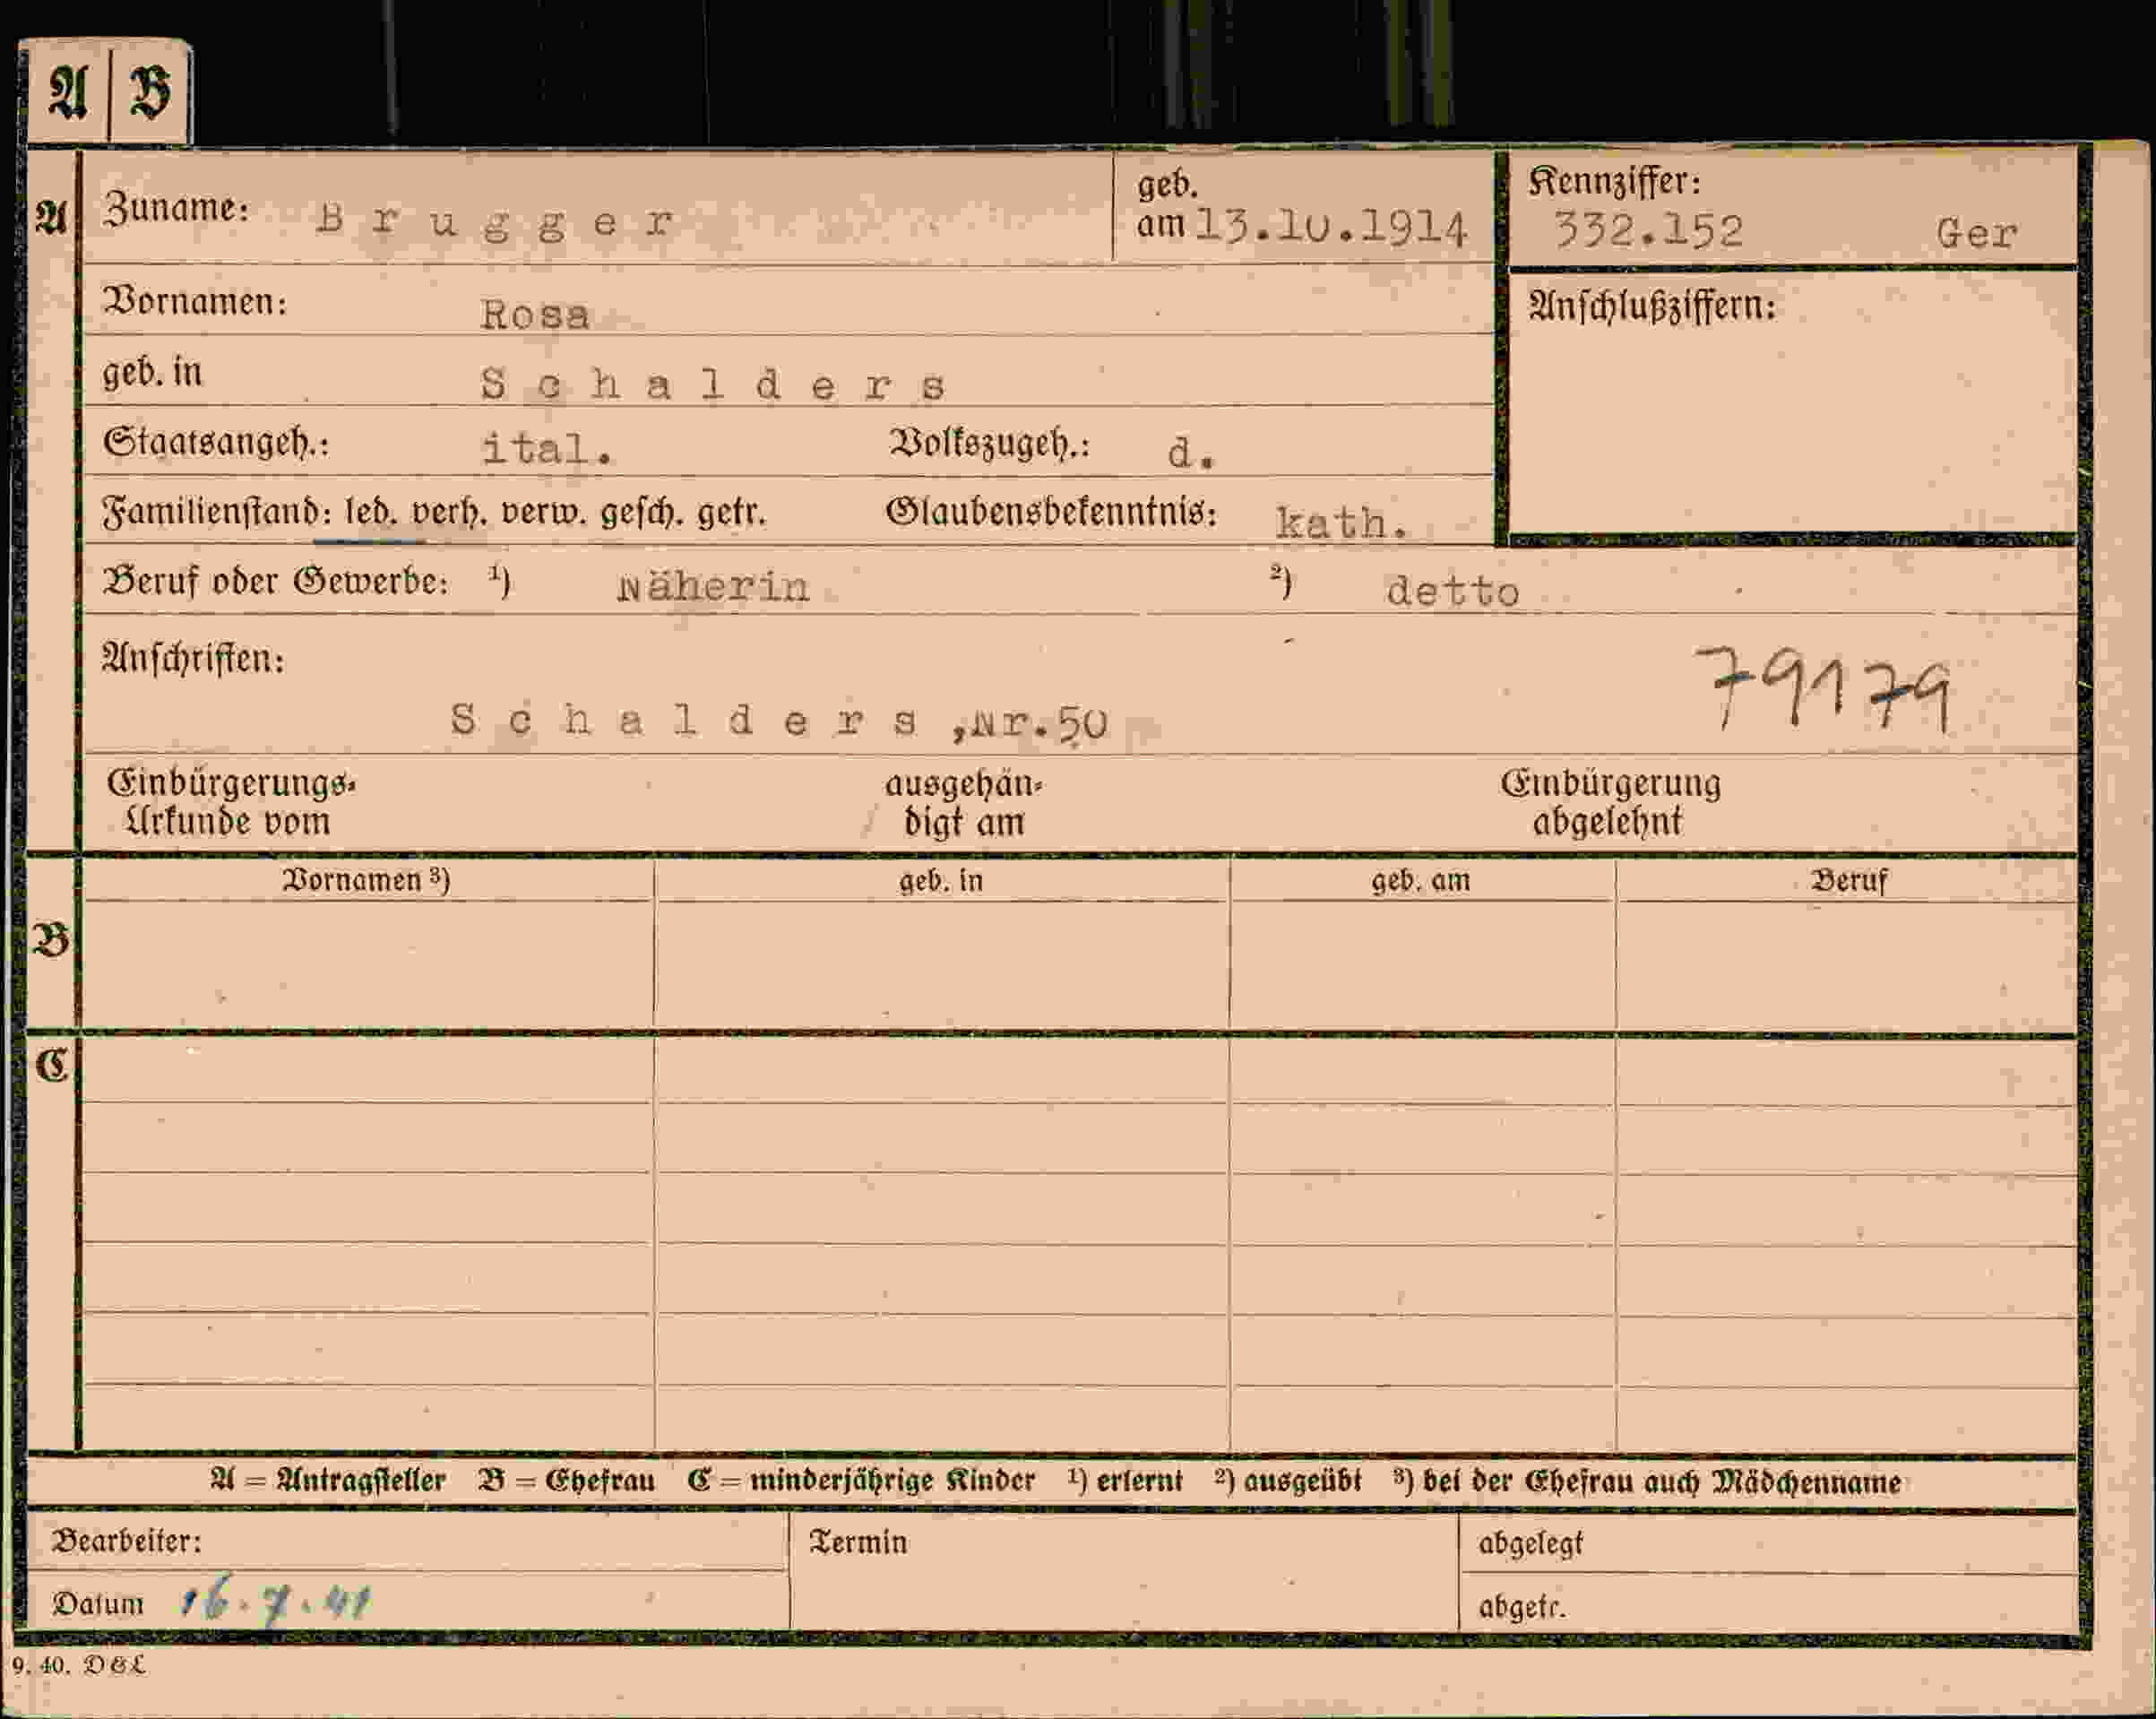 A B
A Zuname: Brugger geb. am 13.10.1914 Kennziffer: 332.152 Ger
Vornamen: Rosa Anschlußziffern:
geb. in Schalders
Staatsangeh.: ital. Volkszugeh.: d.
Familienstand: led. verh. verw. gesch. getr. Glaubensbekenntnis: kath.
Beruf oder Gewerbe: ¹) Näherin ²) detto
Anschriften: 79179
Schalders ,Nr.50
Einbürgerungs- ausgehän- Einbürgerung
Urkunde vom digt am abgelehnt
Vornamen ³) geb. in geb. am Beruf
B
C
A = Antragsteller B = Ehefrau C = minderjährige Kinder ¹) erlernt ²) ausgeübt ³) bei der Ehefrau auch Mädchenname
Bearbeiter: Termin abgelegt
Datum 16.7.41 abgetr.
9. 40. D&L